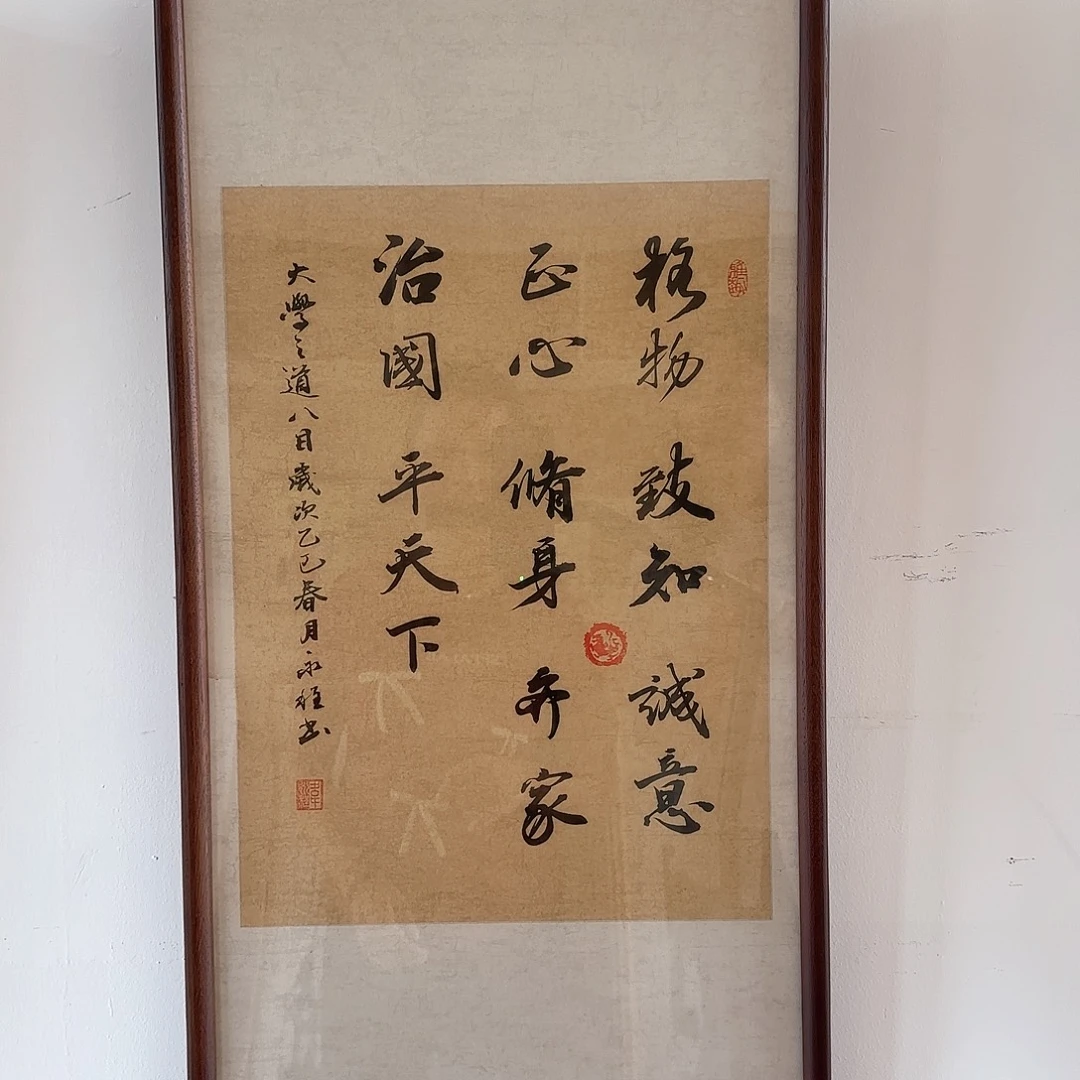 格物 致知 誠意
正心 脩身 齐家
治國 平天下
大學之道八目歲次乙巳春月永雄书